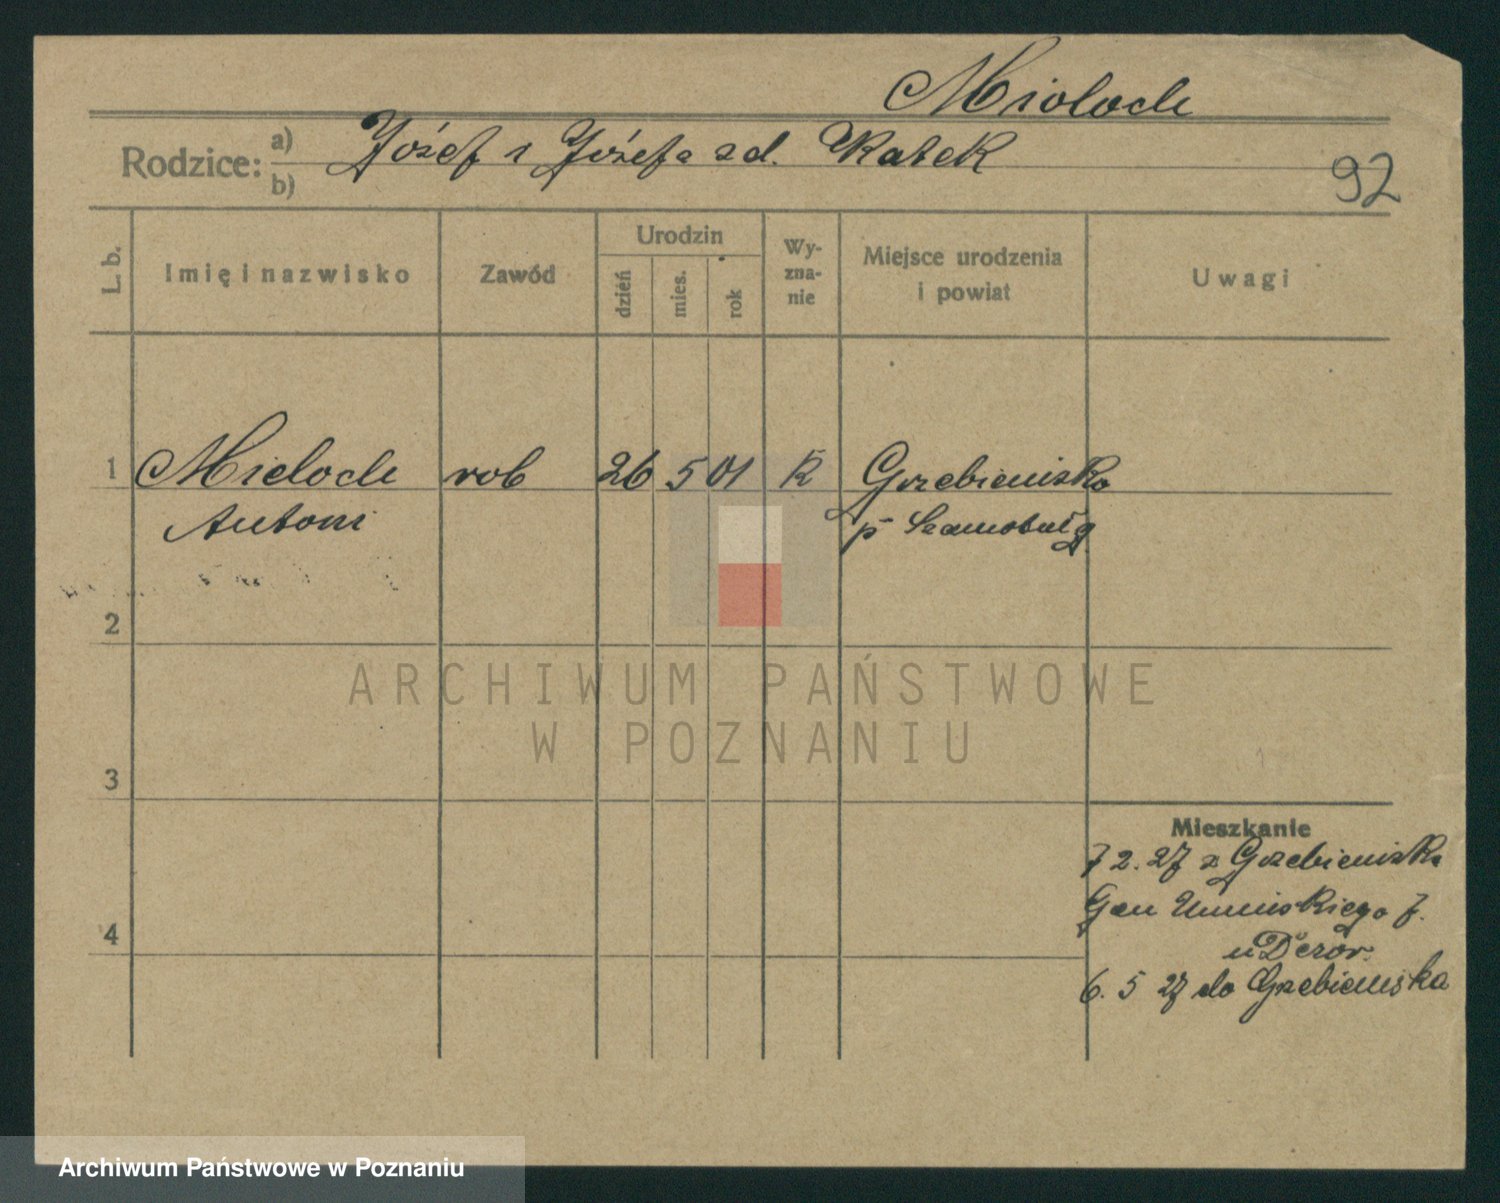 Mioloch
Rodzice: a) Józef i Józefa z d. Ratek
b)
92
L. b.
Imię i nazwisko
Zawód
Urodzin
dzień
mies.
rok
Wy-
zna-
nie
Miejsce urodzenia
i powiat
Uwagi
1 Mieloch rob 26 5 01 k Grzebienisko
Antoni p Szamotuły
2
3
4
ARCHIWUM PAŃSTWOWE
W POZNANIU
Mieszkanie
7 2. 27 z Grzebieniska
Gen Umińskiego 7.
u Dezor.
6. 5 27 do Grzebieniska
Archiwum Państwowe w Poznaniu